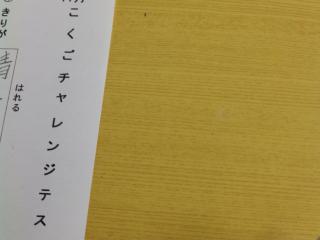 こくごチャレンジテス
きりが
晴
はれる